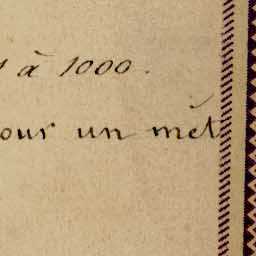 à 1000.
our un mèt